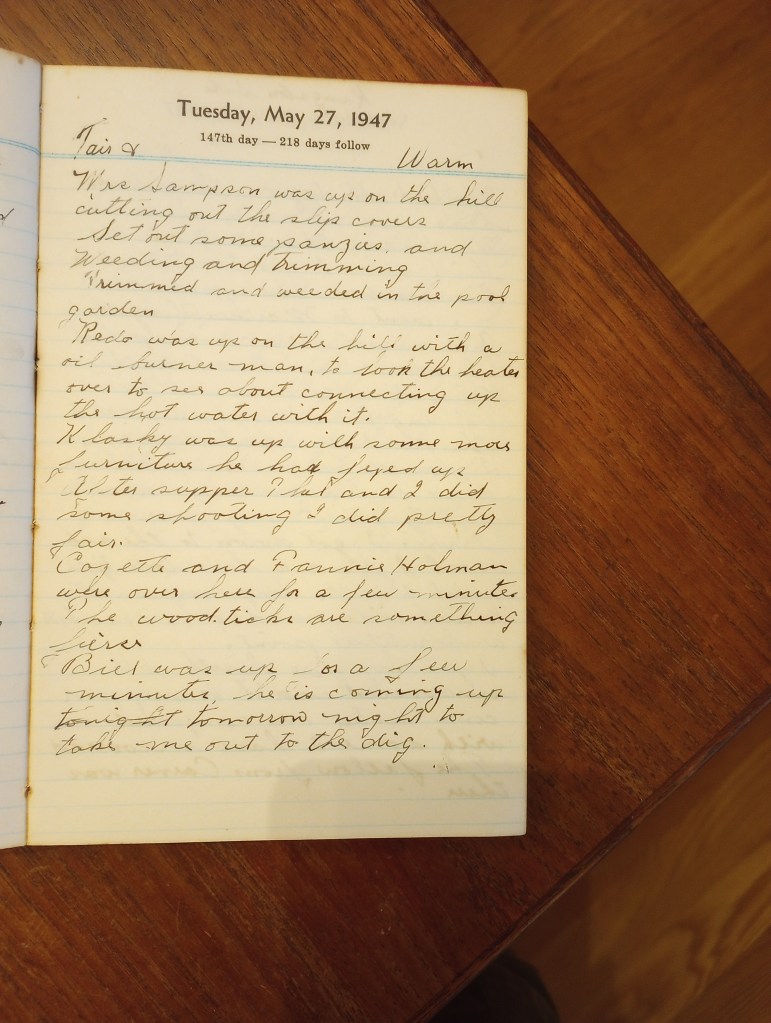 Tuesday, May 27, 1947
147th day — 218 days follow
Fair & Warm
Mrs Sampson was up on the hill
cutting out the slip covers
Set out some panzies. and
Weeding and trimming
Trimmed and weeded in the pool
garden
Redo was up on the hill with a
oil burner man, to look the heater
over to see about connecting up
the hot water with it.
Klasky was up with some more
furniture he had fixed up
After supper Phil and I did
some shooting I did pretty
fair.
and Fannie Holman
were over here for a few minutes
The wood.ticks are something
fierse
Bill was up for a few
minutes, he is coming up
tonight tomorrow night to
take me out to the dig.